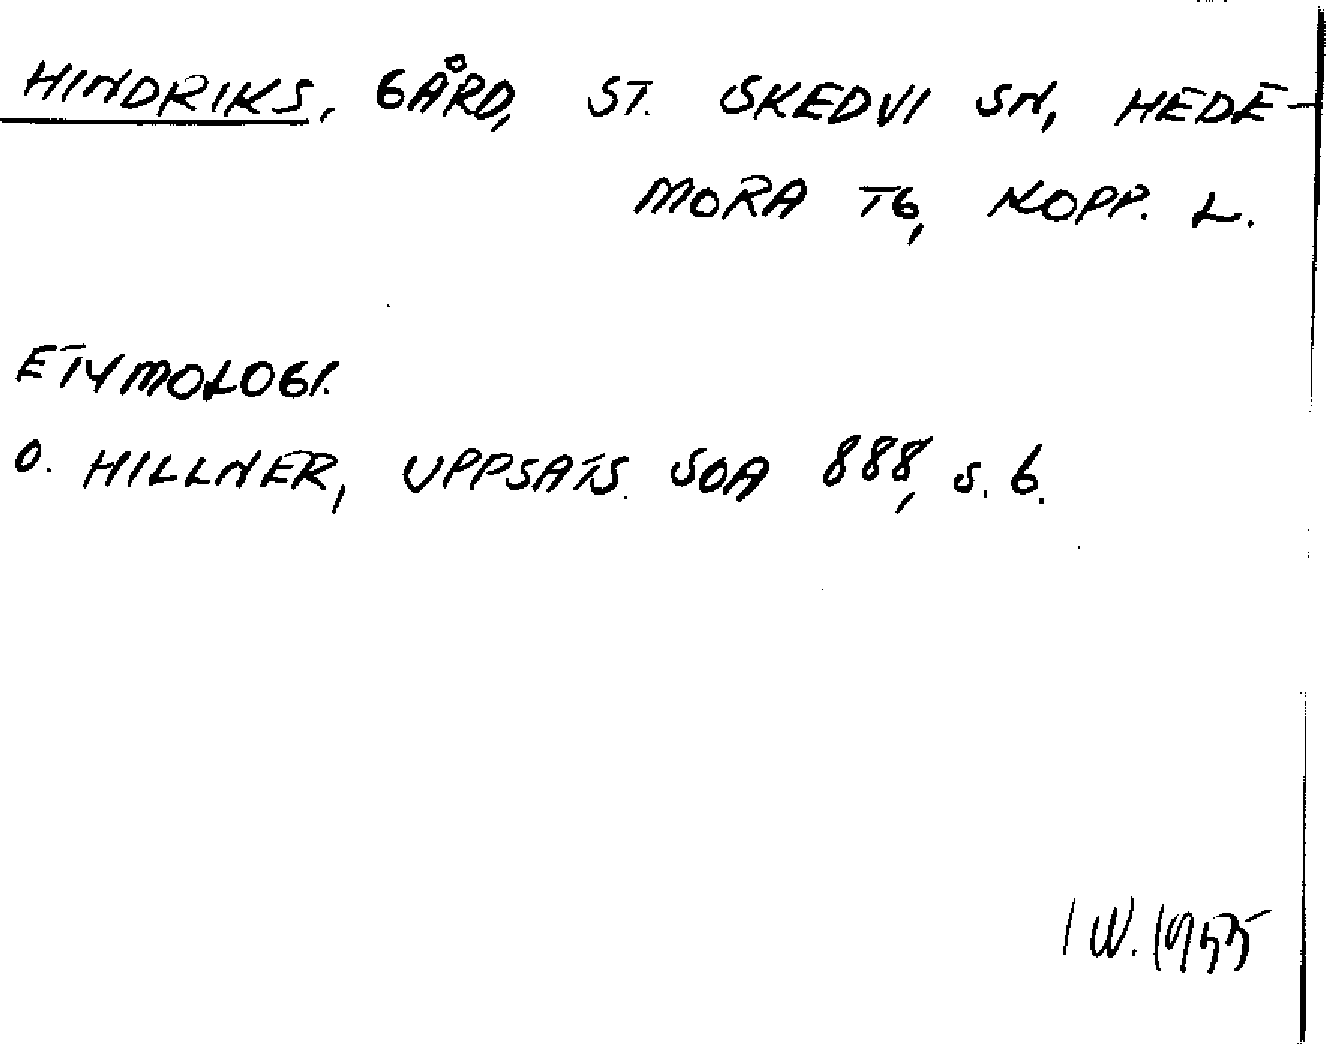 HINDRIKS, GÅRD, ST. SKEDVI SN, HEDE-
MORA TG, KOPP. L.
ETYMOLOGI.
O. HILLNER, UPPSATS. SOA 888, S. 6.
I W. 1955